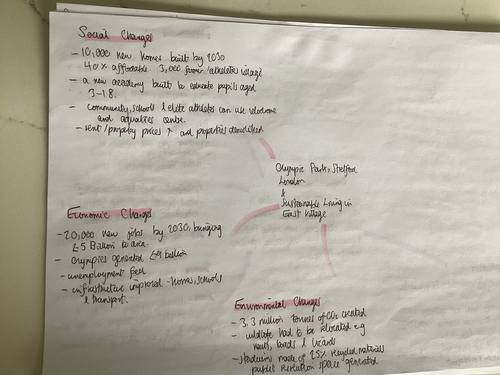 Social Changes
- 10,000 new homes built by 2030
40% affordable. 3,000 from athletes village
- a new academy built to educate pupils aged
3-18.
- community, schools & elite athletes can use velodrome
and aquatics centre.
- rent/property prices ↑ and properties demolished
Olympic Park, Stratford
London
&
Sustainable Living in
East Village
Economic Changes
- 20,000 new jobs by 2030, bringing
£5 Billion to area.
- Olympics generated billion
- unemployment fell
- infrastructure improved - homes, schools
& transport.
Environmental Changes
- 3.3 million tonnes of CO2 created
- wildlife had to be relocated e.g
newts, toads & lizards
- stadiums made of 25% recycled materials
recreation space generated